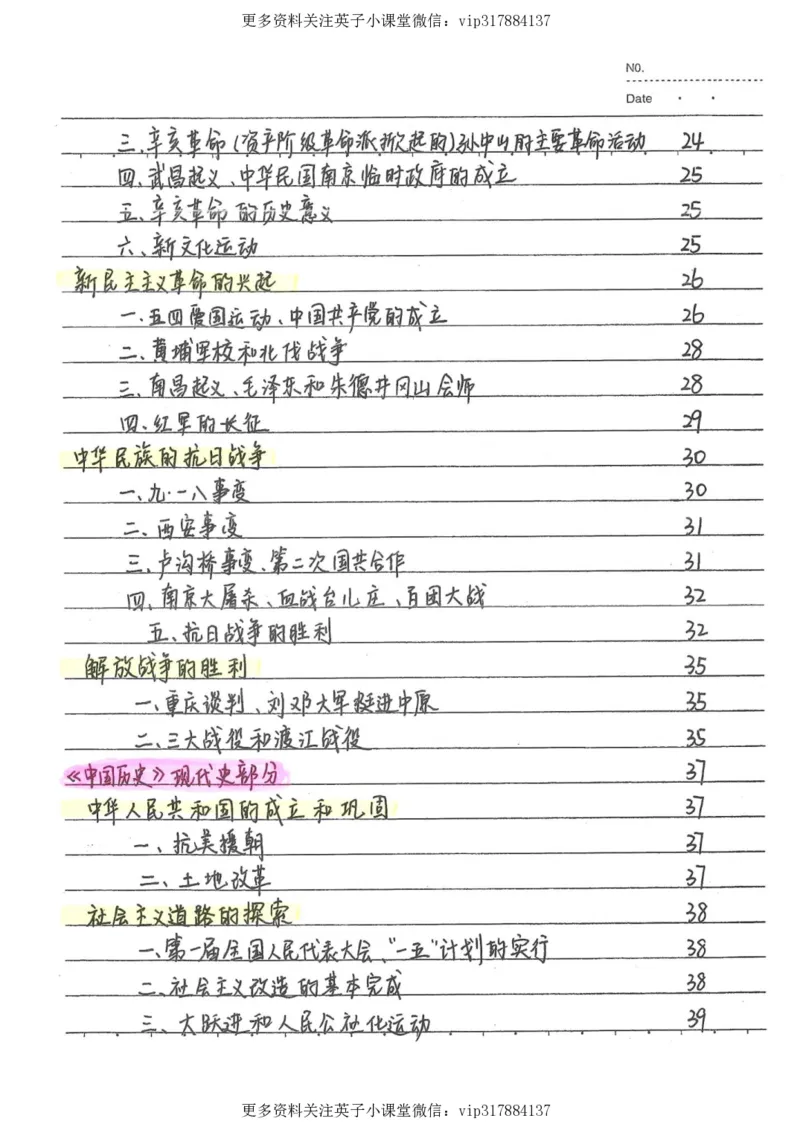 更多资料关注英子小课堂微信：vip317884137
NO.
Date
三、辛亥革命(资产阶级革命派掀起的)孙中山的主要革命活动 24
四、武昌起义、中华民国南京临时政府的成立 25
五、辛亥革命的历史意义 25
六、新文化运动 25
新民主主义革命的兴起 26
一、五四爱国运动、中国共产党的成立 26
二、黄埔军校和北伐战争 28
三、南昌起义、毛泽东和朱德井冈山会师 28
四、红军的长征 29
中华民族的抗日战争 30
一、九·一八事变 30
二、西安事变 31
三、卢沟桥事变、第二次国共合作 31
四、南京大屠杀、血战台儿庄、百团大战 32
五、抗日战争的胜利 32
解放战争的胜利 35
一、重庆谈判、刘邓大军挺进中原 35
二、三大战役和渡江战役 35
《中国历史》现代史部分 37
中华人民共和国的成立和巩固 37
一、抗美援朝 37
二、土地改革 37
社会主义道路的探索 38
一、第一届全国人民代表大会、"一五"计划的实行 38
二、社会主义改造的基本完成 38
三、大跃进和人民公社化运动 39
更多资料关注英子小课堂微信：vip317884137